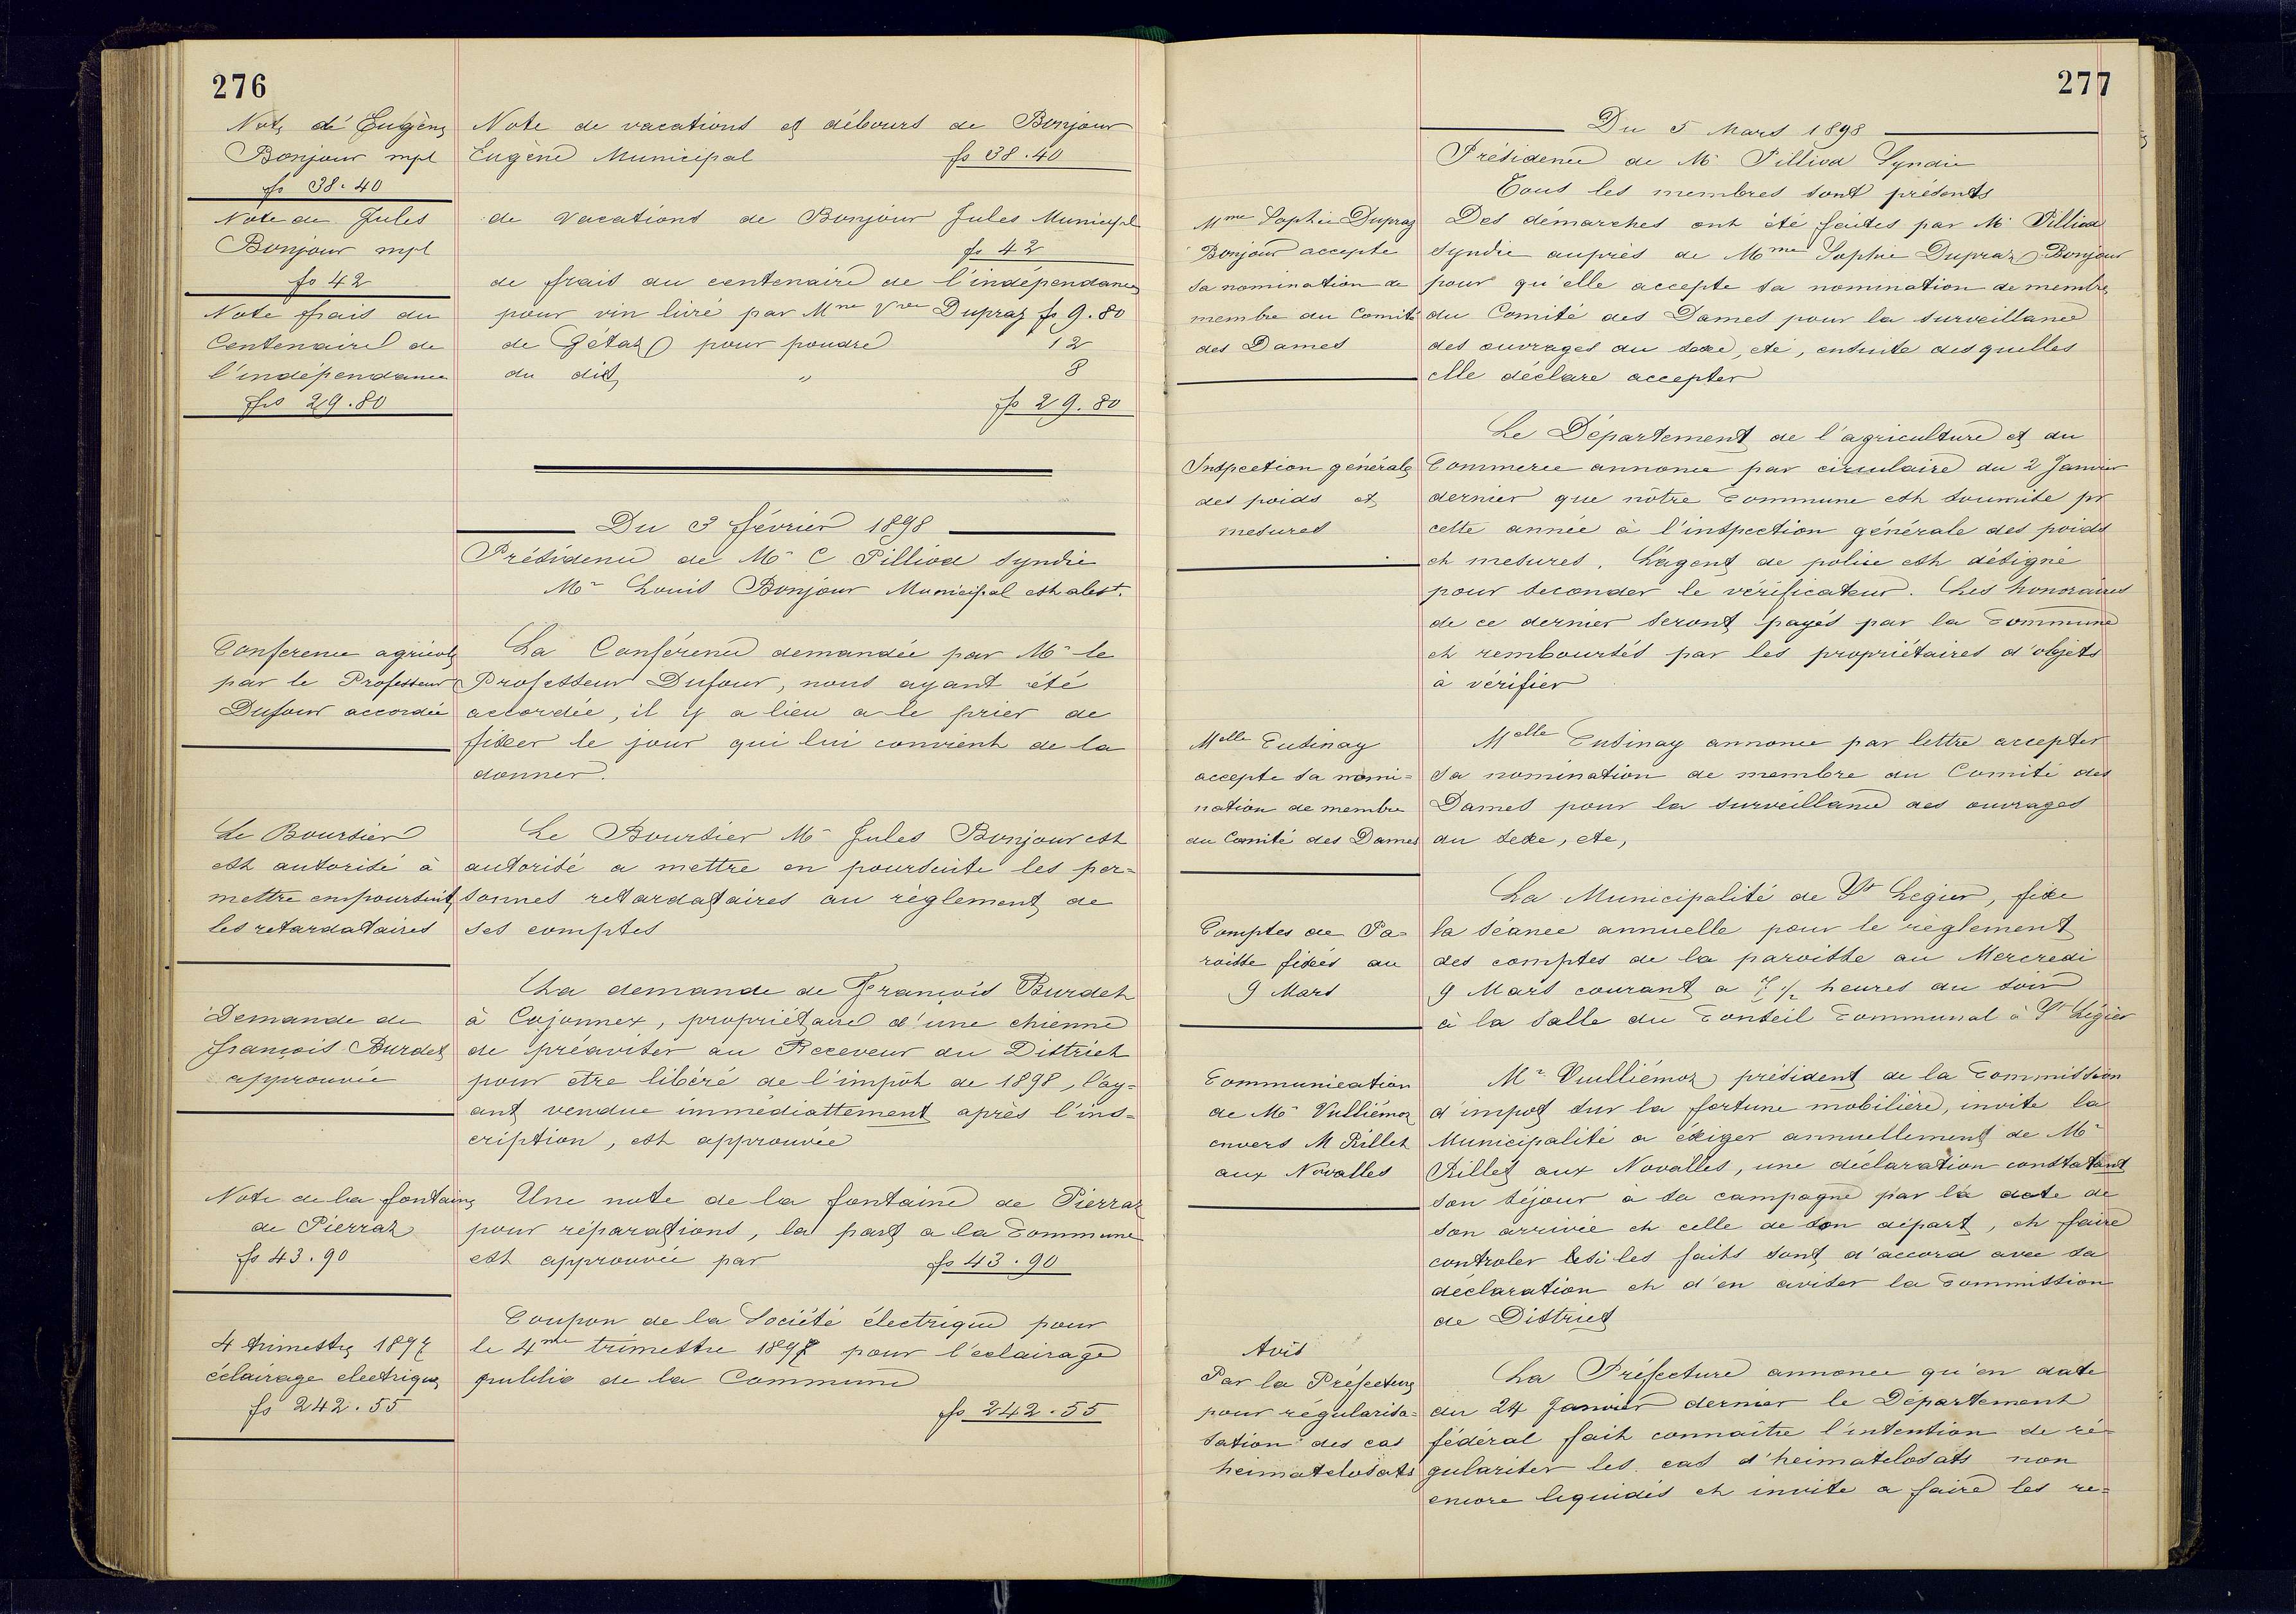 276
Note de Eugène
Bonjour mpl
fs 38.40
Note de vacations et débours de Bonjour
Eugène Municipal fs 38.40
Note de Jules
Bonjour mpl
fs 42
de vacations de Bonjour Jules Municipal
fs 42
Note frais du
Centenaire de
l'indépendance
frs 29.80
de frais du centenaire de l'indépendance
pour vin livré par Mme Vve Dupraz fs 9.80
de Gétaz pour poudre 12
du dit " 8
fs 29.80
Du 3 février 1898
Présidence de Mr C Pilliod syndic
Mr Louis Bonjour Municipal est abst.
Conference agricole
par le Professeur
Dufour accordée
La Conférence demandée par Mr le
Professeur Dufour, nous ayant été
accordée, il y a lieu a le prier de
fixer le jour qui lui convient de la
donner.
Le Boursier
est autorisé à
mettre en poursuite
les retardataires
Le Boursier Mr Jules Bonjour est
autorisé a mettre en poursuite les per=
sonnes retardataires au règlement de
ses comptes
Demande de
françois Burdet
approuvée
La demande de François Burdet
à Cojonnex, propriétaire d'une chienne
de préaviser au Receveur du District
pour être libéré de l'impôt de 1898, l'ay=
ant vendue immédiattement après l'ins=
cription, est approuvée
Note de la fontaine
de Pierraz
fs 43.90
Une note de la fontaine de Pierraz
pour réparations, la part a la Commune
est approuvée par fs 43.90
4 trimestre 1897
éclairage electrique
fs 242.55
Coupon de la Société électrique pour
le 4me trimestre 1897 pour l'éclairage
public de la Commune
fs 242.55
277
Du 5 Mars 1898
Présidence de Mr Pilliod Syndic
Tous les membres sont présents
Mme Sophie Dupraz
Bonjour accepte
sa nomination de
membre du Comité
des Dames
Des démarches ont été faites par Mr Pilliod
syndic auprès de Mme Sophie Dupraz Bonjour
pour qu'elle accepte sa nomination de membre
du Comité des Dames pour la surveillance
des ouvrages du sexe, etc, ensuite des quelles
elle déclare accepter
Inspection générale
des poids et
mesures
Le Département de l'agriculture et du
Commerce annonce par circulaire du 2 Janvier
dernier que nôtre Commune est soumise pr
cette année à l'inspection générale des poids
et mesures. L'agent de police est désigné
pour seconder le vérificateur. Les honoraires
de ce dernier seront payés par la Commune
et remboursés par les propriétaires d'objets
à vérifier
Melle Cusinay
accepte sa nomi=
nation de membre
du Comité des Dames
Melle Cusinay annonce par lettre accepter
sa nomination de membre du Comité des
Dames pour la surveillance des ouvrages
du sexe, etc,
Comptes de Pa=
roisse fixés au
9 Mars
La Municipalité de St Legier, fixe
la séance annuelle pour le règlement
des comptes de la paroisse au Mercredi
9 Mars courant a 7 1/2 heures du soir
à la salle du Conseil Communal à St Légier
Communication
de Mr Vulliémoz
envers M Rillet
aux Novalles
Mr Vuilliémoz président de la Commission
d'impot sur la fortune mobilière, invite la
Municipalité a éxiger annuellement de Mr
Rillet aux Novalles, une déclaration constatant
son séjour à sa campagne par la date de
son arrivée et celle de son départ, et faire
controler si les faits sont d'accord avec sa
déclaration et d'en aviser la Commission
de District
Avis
Par la Préfecture
pour régularisa=
sation des cas
heimatelosats
La Préfecture annonce qu'en date
du 24 Janvier dernier le Département
fédéral fait connaître l'intention de ré=
gulariser les cas d'heimatelosats non
encore liquidés et invite a faire les re=